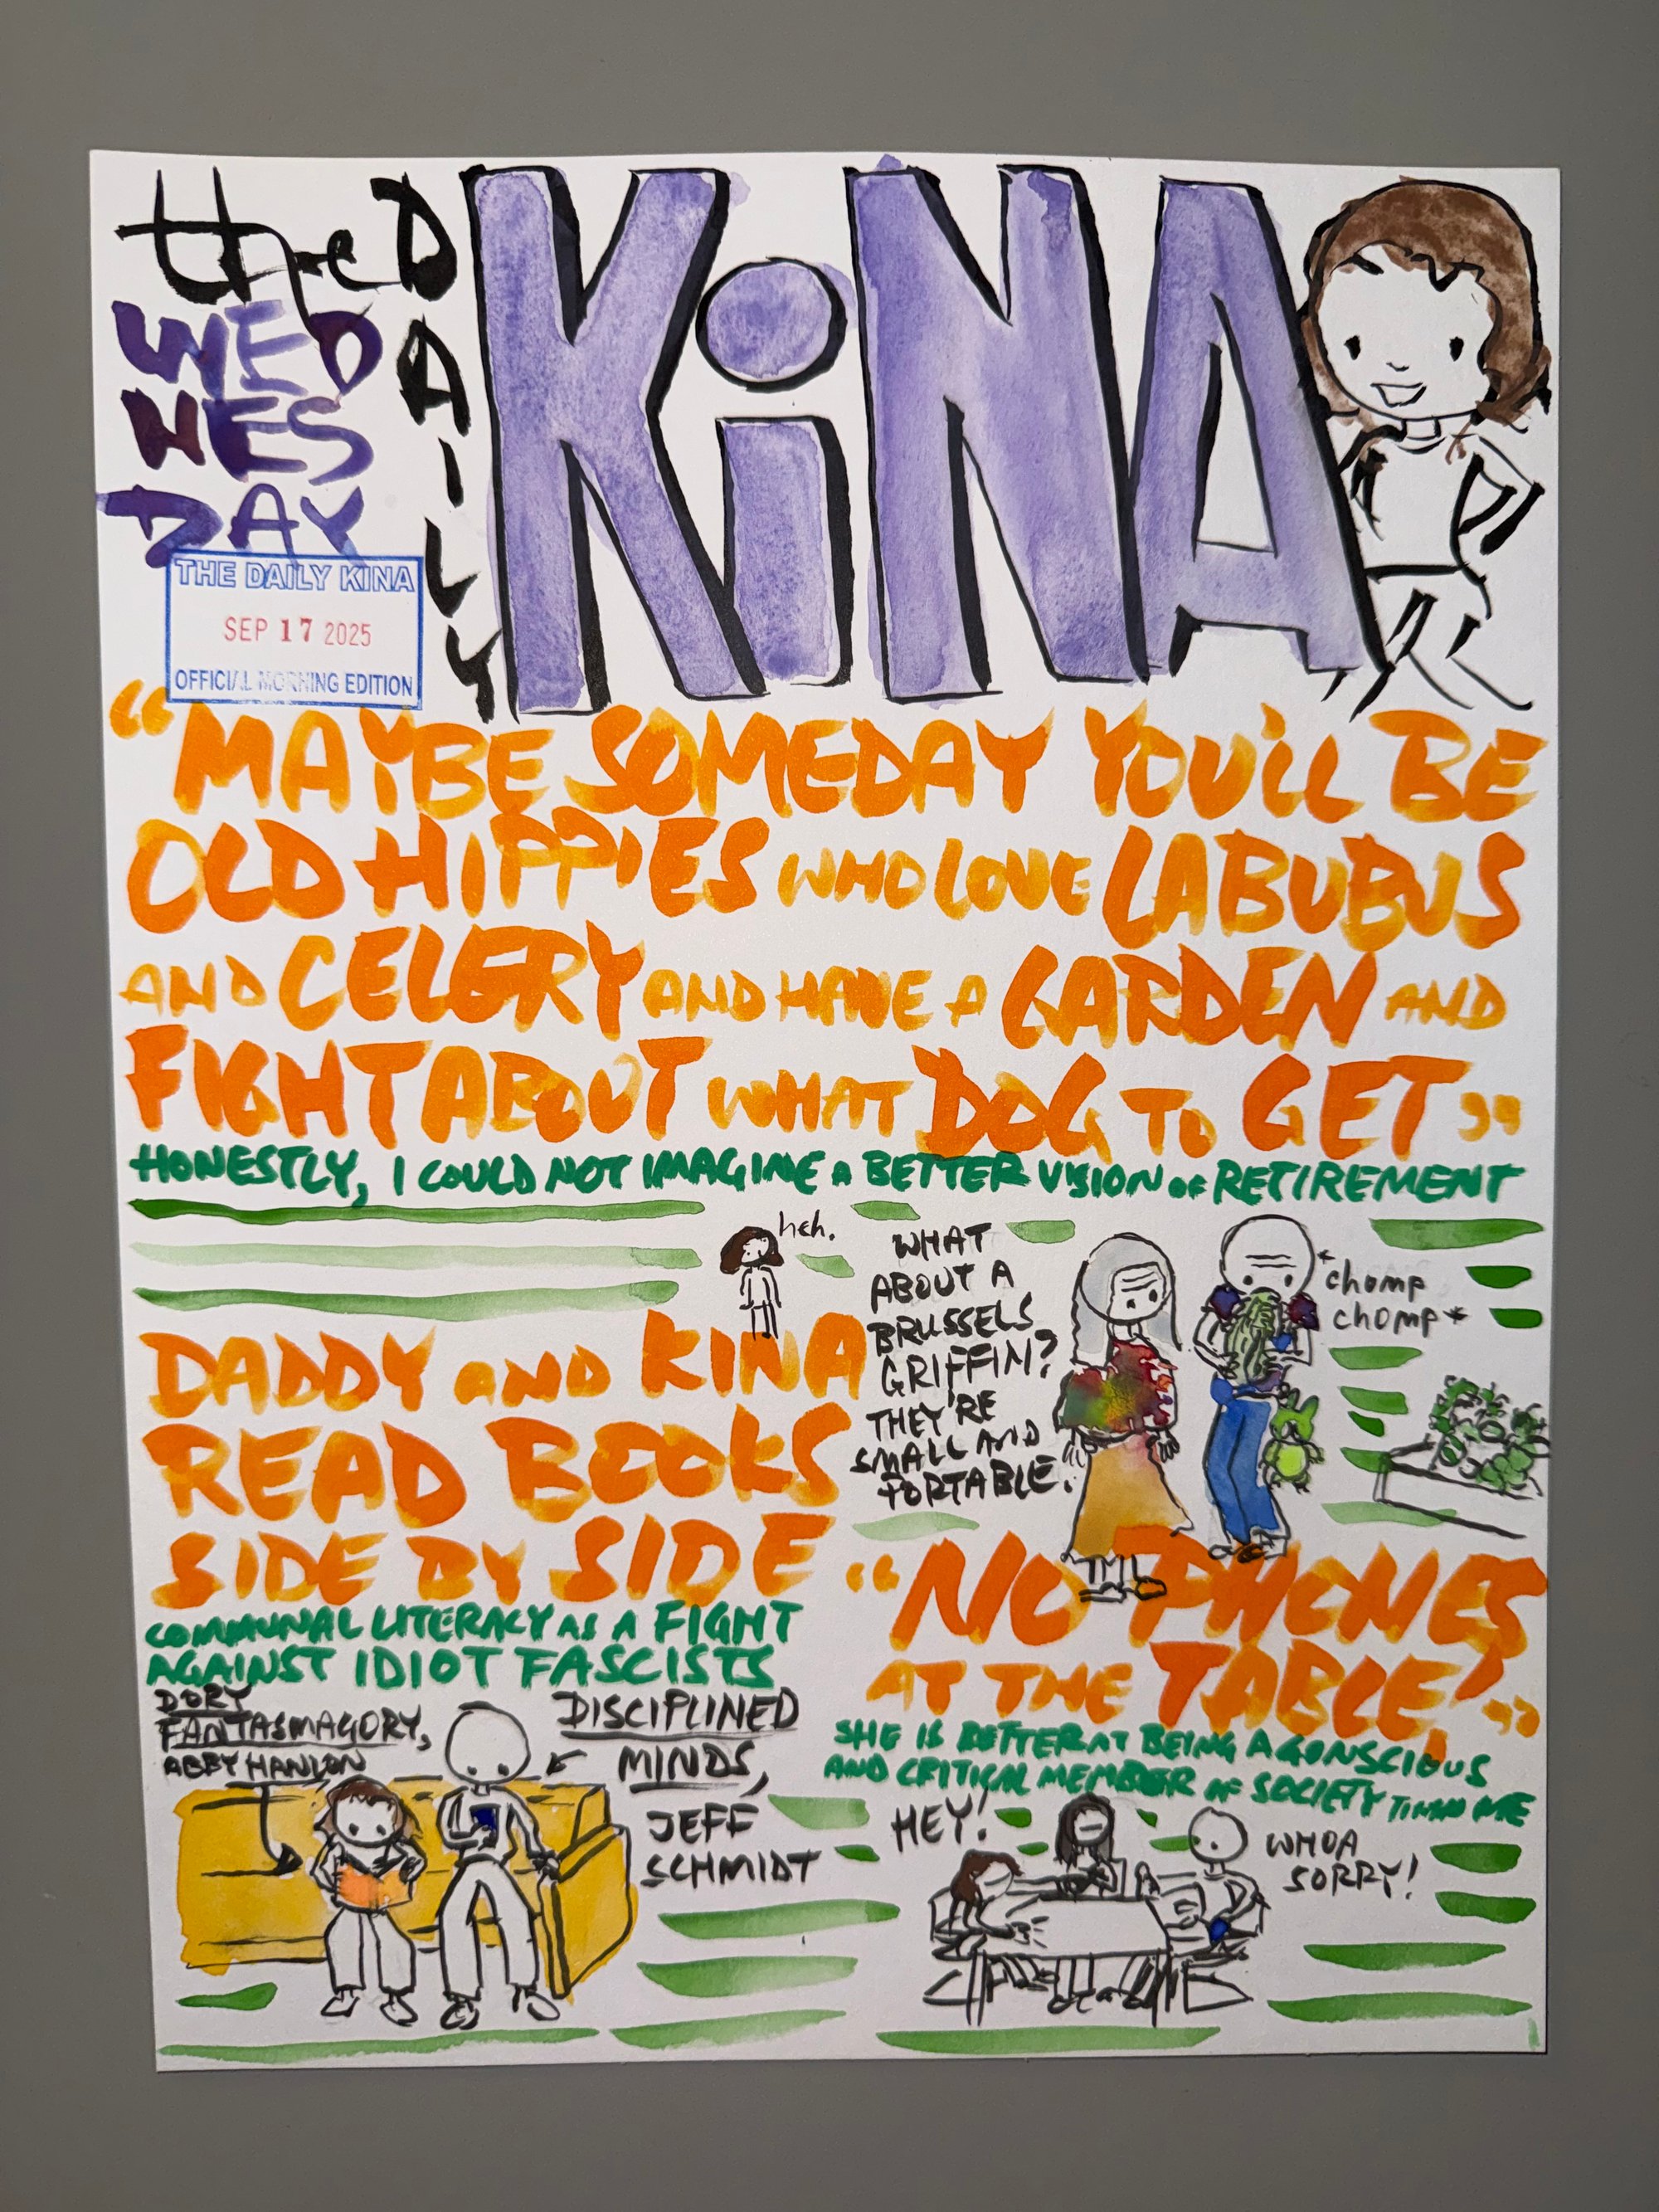 the DAILY
WED
NES
DAY
KiNA
THE DAILY KINA
SEP 17 2025
OFFICIAL MORNING EDITION
"MAYBE SOMEDAY YOU'LL BE
OLD HIPPIES WHO LOVE LABUBUS
AND CELERY AND HAVE A GARDEN AND
FIGHT ABOUT WHAT DOG TO GET"
HONESTLY, I COULD NOT IMAGINE A BETTER VISION OF RETIREMENT
heh.
DADDY AND KINA
READ BOOKS
SIDE BY SIDE
COMMUNAL LITERACY AS A FIGHT
AGAINST IDIOT FASCISTS
DORY
FANTASMAGORY,
ABBY HANLON
DISCIPLINED
MINDS,
JEFF
SCHMIDT
WHAT
ABOUT A
BRUSSELS
GRIFFIN?
THEY'RE
SMALL AND
PORTABLE.
*chomp
chomp*
"NO PHONES
AT THE TABLE!"
SHE IS BETTER AT BEING A CONSCIOUS
AND CRITICAL MEMBER OF SOCIETY THAN ME
HEY!
WHOA
SORRY!